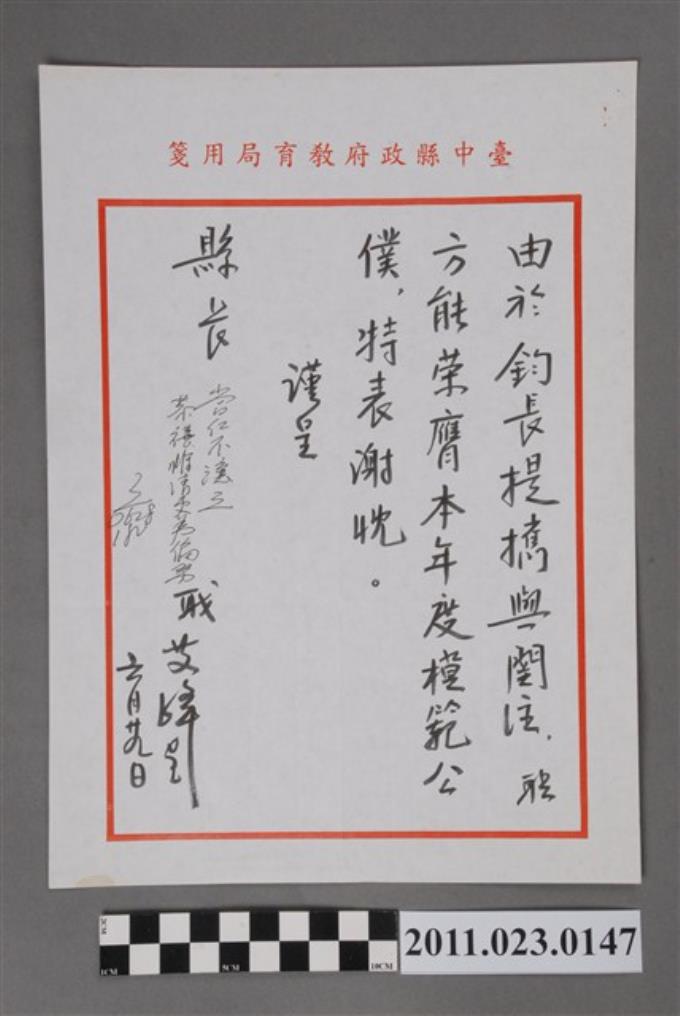 臺中縣政府教育局用箋
由於鈞長提攜與關注，職
方能荣膺本年度模範公
僕，特表謝忱。
謹呈
縣長
當仁不讓之
恭禧
職
六月廿九日
2CM
1CM
5CM
10CM
2011.023.0147